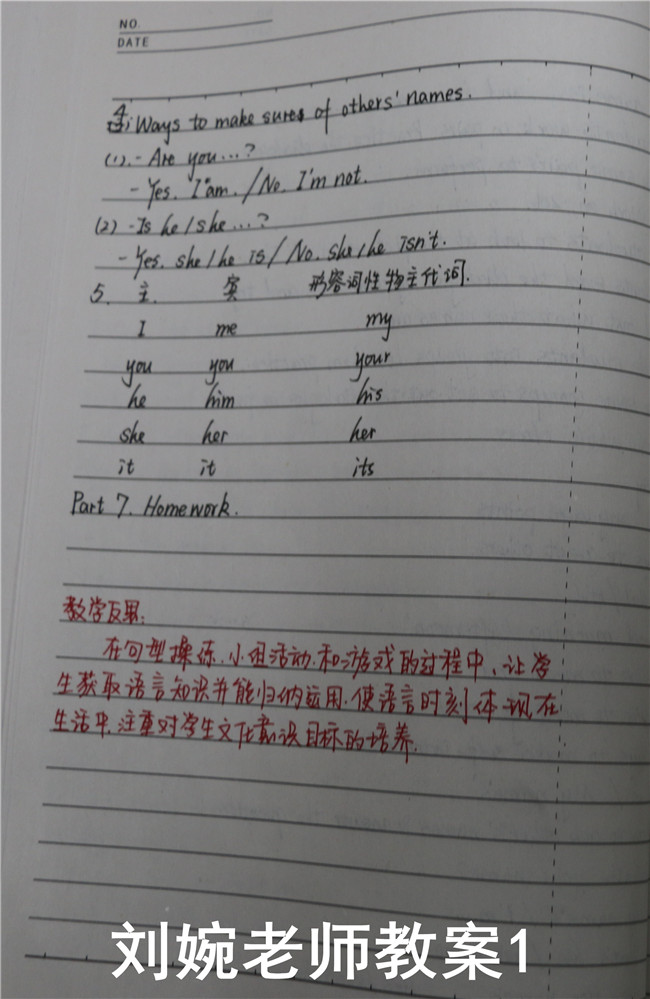 NO.
DATE
4. Ways to make sures of others' names.
(1). - Are you...?
- Yes. I am. / No. I'm not.
(2) - Is he / she ...?
- Yes. she / he is / No. she / he isn't.
5. 主. 宾 形容词性物主代词.
I me my
you you your
he him his
she her her
it it its
Part 7. Homework.
教学反思:
在句型操练、小组活动和游戏的过程中、让学
生获取语言知识并能归纳运用. 使语言时刻体现在
生活中. 注重对学生文化意识目标的培养.
刘婉老师教案1